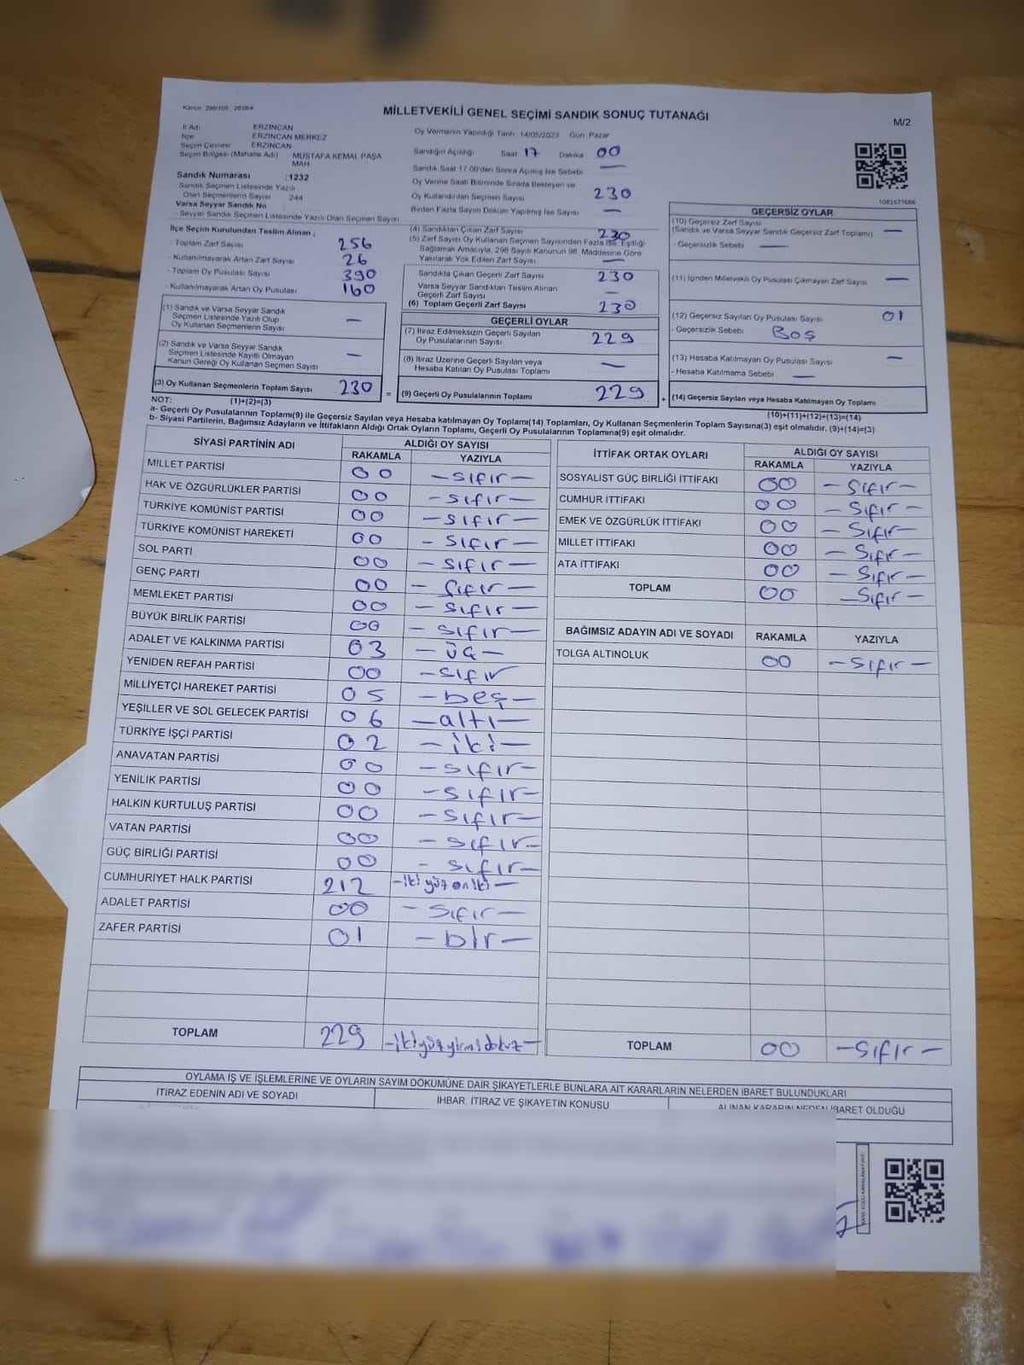 MİLLETVEKİLİ GENEL SEÇİMİ SANDIK SONUÇ TUTANAĞI
M/2
İl Adı : ERZİNCAN
İlçe : ERZİNCAN MERKEZ
Seçim Çevresi : ERZİNCAN
Seçim Bölgesi (Mahalle Adı) : MUSTAFA KEMAL PAŞA MAH
Sandık Numarası : 1232
Sandık Seçmen Listesinde Yazılı
Olan Seçmenlerin Sayısı : 244
Varsa Seyyar Sandık No
- Seyyar Sandık Seçmen Listesinde Yazılı Olan Seçmen Sayısı
İlçe Seçim Kurulundan Teslim Alınan ;
- Toplam Zarf Sayısı 256
- Kullanılmayarak Artan Zarf Sayısı 26
- Toplam Oy Pusulası Sayısı 390
- Kullanılmayarak Artan Oy Pusulası 160
(1) Sandık ve Varsa Seyyar Sandık
Seçmen Listesinde Yazılı Olup
Oy Kullanan Seçmenlerin Sayısı —
(2) Sandık ve Varsa Seyyar Sandık
Seçmen Listesinde Kayıtlı Olmayan
Kanun Gereği Oy Kullanan Seçmen Sayısı —
(3) Oy Kullanan Seçmenlerin Toplam Sayısı 230
Oy Vermenin Yapıldığı Tarih : 14/05/2023 Gün : Pazar
Sandığın Açıldığı Saat 17 Dakika 00
Sandık Saat 17.00'den Sonra Açılmış İse Sebebi —
Oy Verme Saati Bitiminde Sırada Bekleyen ve
Oy Kullandırılan Seçmen Sayısı 230
Birden Fazla Sayım Döküm Yapılmış İse Sayısı —
(4) Sandıktan Çıkan Zarf Sayısı 230
(5) Zarf Sayısı Oy Kullanan Seçmen Sayısından Fazla İse, Eşitliği
Sağlamak Amacıyla, 298 Sayılı Kanunun 98. Maddesine Göre
Yakılarak Yok Edilen Zarf Sayısı —
Sandıkta Çıkan Geçerli Zarf Sayısı 230
Varsa Seyyar Sandıktan Teslim Alınan
Geçerli Zarf Sayısı —
(6) Toplam Geçerli Zarf Sayısı 230
GEÇERLİ OYLAR
(7) İtiraz Edilmeksizin Geçerli Sayılan
Oy Pusulalarının Sayısı 229
(8) İtiraz Üzerine Geçerli Sayılan veya
Hesaba Katılan Oy Pusulası Toplamı —
= (9) Geçerli Oy Pusulalarının Toplamı 229
GEÇERSİZ OYLAR
(10) Geçersiz Zarf Sayısı
(Sandık ve Varsa Seyyar Sandık Geçersiz Zarf Toplamı) —
- Geçersizlik Sebebi —
(11) İçinden Milletvekili Oy Pusulası Çıkmayan Zarf Sayısı —
(12) Geçersiz Sayılan Oy Pusulası Sayısı 01
- Geçersizlik Sebebi : Boş
(13) Hesaba Katılmayan Oy Pusulası Sayısı —
- Hesaba Katılmama Sebebi —
+ (14) Geçersiz Sayılan veya Hesaba Katılmayan Oy Toplamı
NOT: (1)+(2)=(3)
(10)+(11)+(12)+(13)=(14)
a- Geçerli Oy Pusulalarının Toplamı(9) ile Geçersiz Sayılan veya Hesaba katılmayan Oy Toplamı(14) Toplamları, Oy Kullanan Seçmenlerin Toplam Sayısına(3) eşit olmalıdır. (9)+(14)=(3)
b- Siyasi Partilerin, Bağımsız Adayların ve İttifakların Aldığı Ortak Oyların Toplamı, Geçerli Oy Pusulalarının Toplamına(9) eşit olmalıdır.
SİYASİ PARTİNİN ADI ALDIĞI OY SAYISI
RAKAMLA YAZIYLA
MİLLET PARTİSİ 00 – sıfır –
HAK VE ÖZGÜRLÜKLER PARTİSİ 00 – sıfır –
TÜRKİYE KOMÜNİST PARTİSİ 00 – sıfır –
TÜRKİYE KOMÜNİST HAREKETİ 00 – sıfır –
SOL PARTİ 00 – sıfır –
GENÇ PARTİ 00 – sıfır –
MEMLEKET PARTİSİ 00 – sıfır –
BÜYÜK BİRLİK PARTİSİ 00 – sıfır –
ADALET VE KALKINMA PARTİSİ 03 – üç –
YENİDEN REFAH PARTİSİ 00 – sıfır
MİLLİYETÇİ HAREKET PARTİSİ 05 – beş –
YEŞİLLER VE SOL GELECEK PARTİSİ 06 – altı –
TÜRKİYE İŞÇİ PARTİSİ 02 – iki –
ANAVATAN PARTİSİ 00 – sıfır –
YENİLİK PARTİSİ 00 – sıfır –
HALKIN KURTULUŞ PARTİSİ 00 – sıfır –
VATAN PARTİSİ 00 – sıfır –
GÜÇ BİRLİĞİ PARTİSİ 00 – sıfır –
CUMHURİYET HALK PARTİSİ 212 – iki yüz on iki –
ADALET PARTİSİ 00 – sıfır –
ZAFER PARTİSİ 01 – bir –
TOPLAM 229 – iki yüz yirmi dokuz –
İTTİFAK ORTAK OYLARI ALDIĞI OY SAYISI
RAKAMLA YAZIYLA
SOSYALİST GÜÇ BİRLİĞİ İTTİFAKI 00 – sıfır –
CUMHUR İTTİFAKI 00 – sıfır –
EMEK VE ÖZGÜRLÜK İTTİFAKI 00 – sıfır –
MİLLET İTTİFAKI 00 – sıfır –
ATA İTTİFAKI 00 – sıfır –
TOPLAM 00 – sıfır –
BAĞIMSIZ ADAYIN ADI VE SOYADI RAKAMLA YAZIYLA
TOLGA ALTINOLUK 00 – sıfır –
TOPLAM 00 – sıfır –
OYLAMA İŞ VE İŞLEMLERİNE VE OYLARIN SAYIM DÖKÜMÜNE DAİR ŞİKAYETLERLE BUNLARA AİT KARARLARIN NELERDEN İBARET BULUNDUKLARI
İTİRAZ EDENİN ADI VE SOYADI
İHBAR, İTİRAZ VE ŞİKAYETİN KONUSU
ALINAN KARARIN NEDEN İBARET OLDUĞU